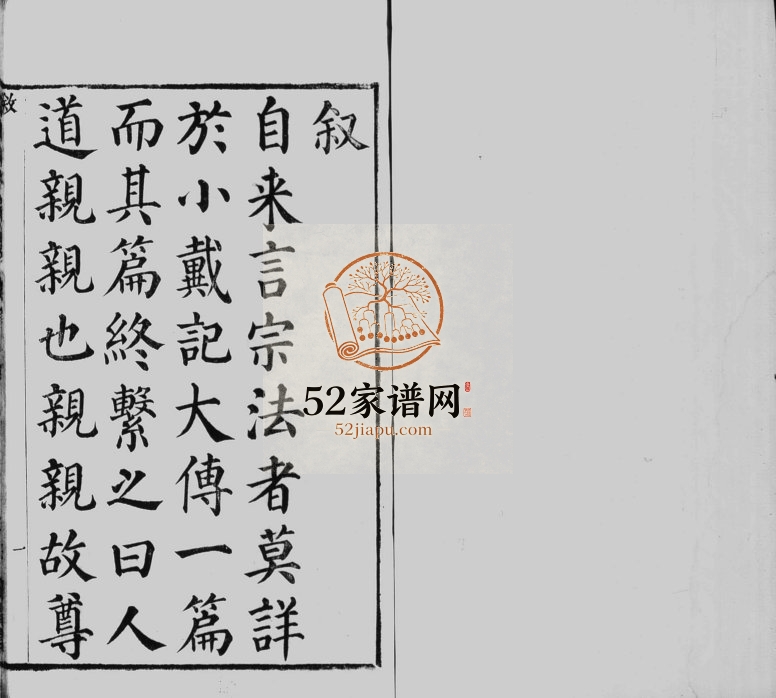 叙
自来言宗法者莫詳
於小戴記大傳一篇
而其篇終繫之曰人
道親親也親親故尊
敘
一
52家谱网
52jiapu.com